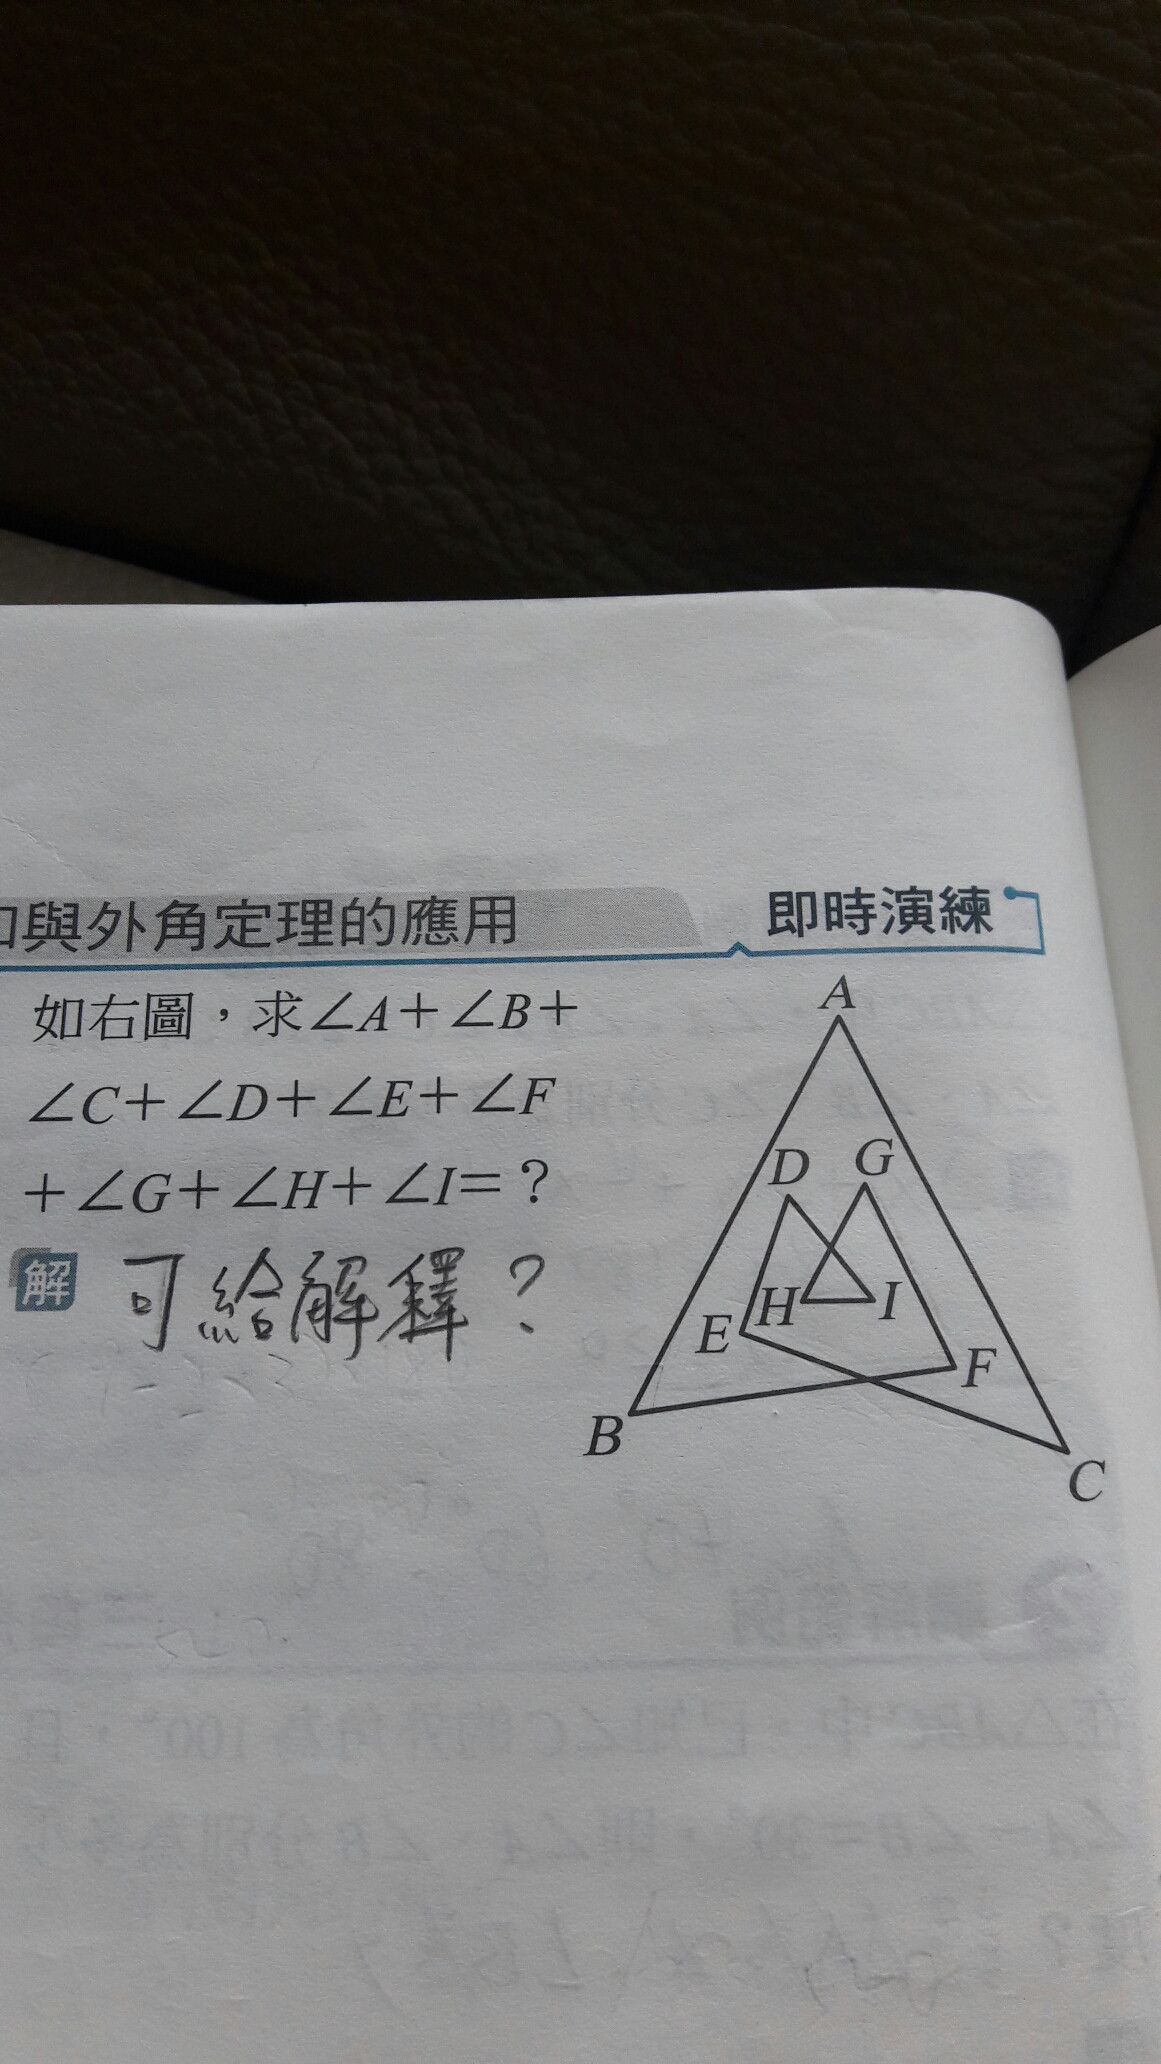 與外角定理的應用
即時演練
如右圖，求∠A＋∠B＋
∠C＋∠D＋∠E＋∠F
＋∠G＋∠H＋∠I＝？
解 可給解釋？
A
D G
H I
E
F
B
C